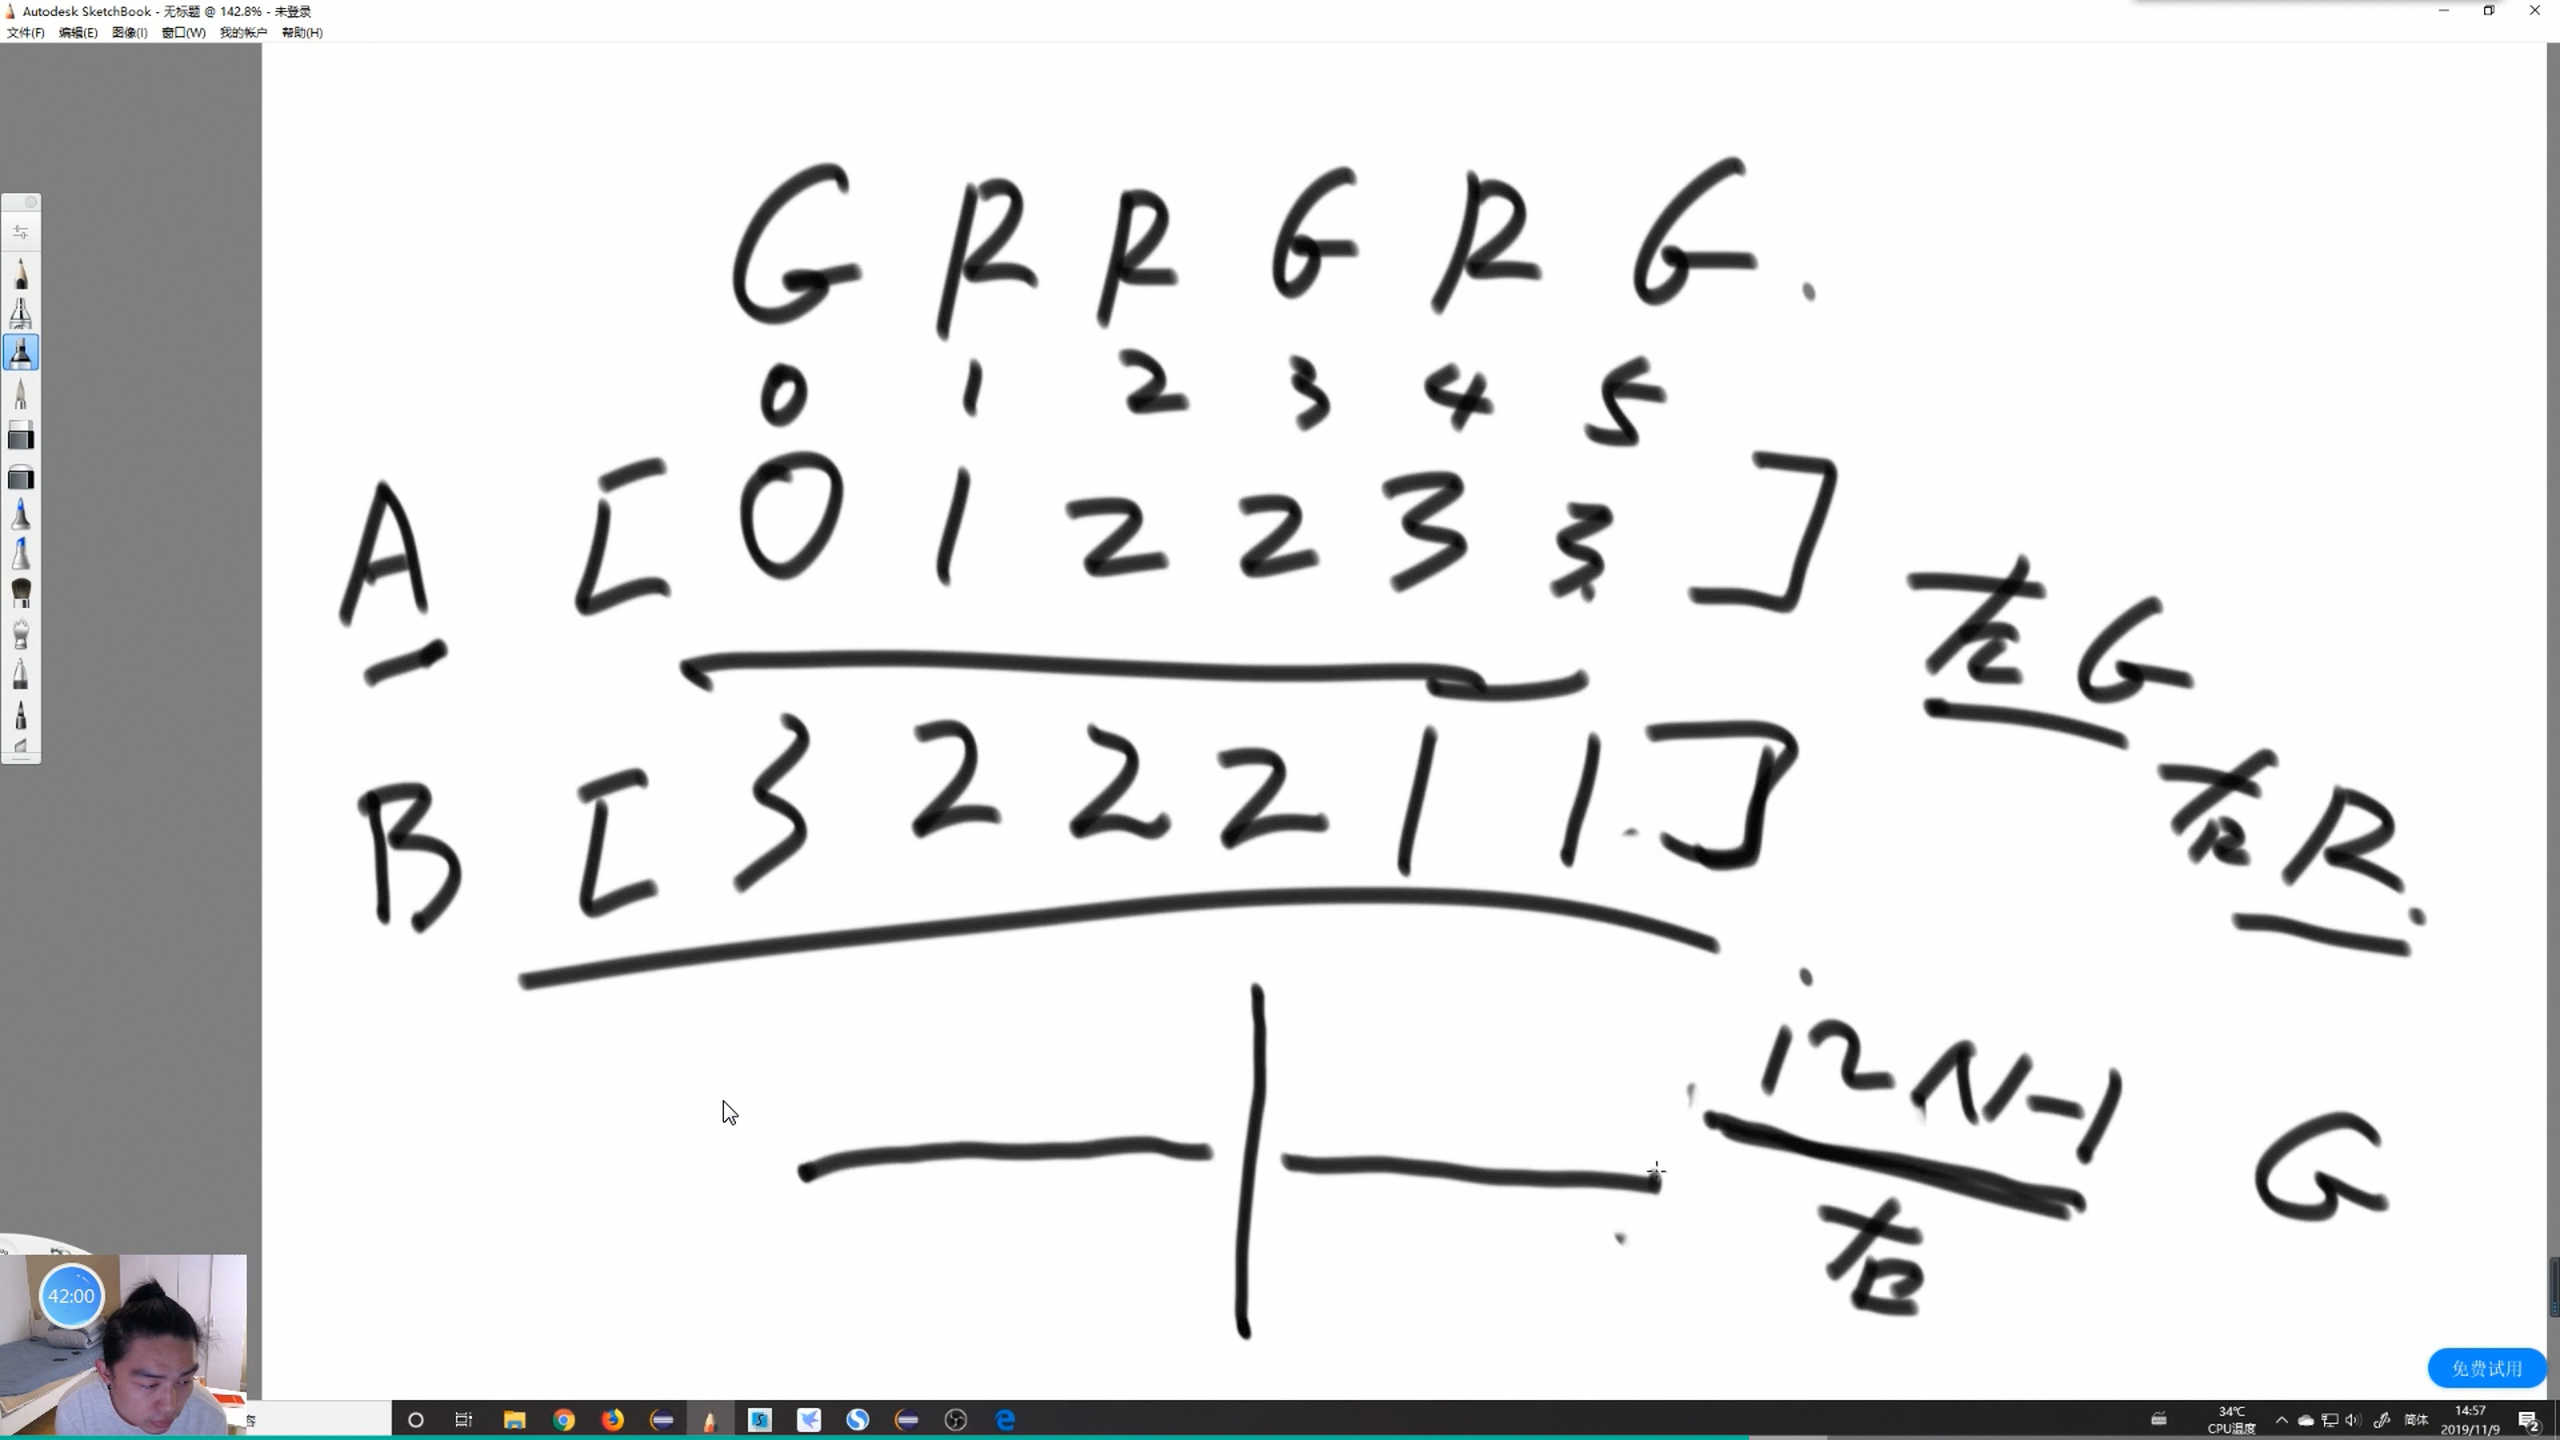 Autodesk SketchBook - 无标题 @ 142.8% - 未登录
文件(F) 编辑(E) 图像(I) 窗口(W) 我的帐户 帮助(H)
G R R G R G.
0 1 2 3 4 5
A [ 0 1 2 2 3 3 ]
左 G
B [ 3 2 2 2 1 1 ]
右 R.
i=N-1
G
右
42:00
免费试用
34℃
CPU温度
简体
14:57
2019/11/9
2